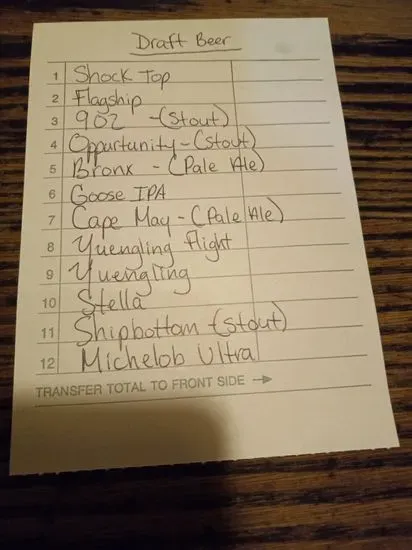 Draft Beer
1 Shock Top
2 Flagship
3 902 - (Stout)
4 Oppurtunity - (Stout)
5 Bronx - (Pale Ale)
6 Goose IPA
7 Cape May - (Pale Ale)
8 Yuengling flight
9 Yuengling
10 Stella
11 Shipbottom (stout)
12 Michelob Ultra
TRANSFER TOTAL TO FRONT SIDE →